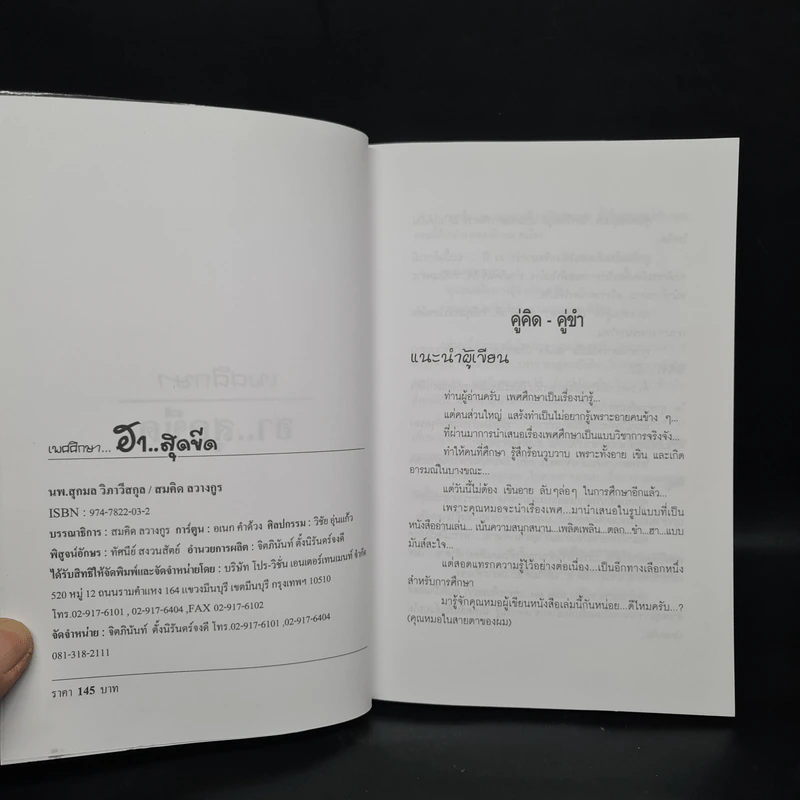 เพศศึกษา... ฮา..สุดขีด
นพ.สุกมล วิภาวีสกุล / สมคิด ลวางกูร
ISBN : 974-7822-03-2
บรรณาธิการ : สมคิด ลวางกูร การ์ตูน : อเนก คำด้วง ศิลปกรรม : วิชัย อุ่นแก้ว
พิสูจน์อักษร : ทัศนีย์ สงวนสัตย์ อำนวยการผลิต : จิตภินันท์ ตั้งนิรันดร์จงดี
ได้รับสิทธิให้จัดพิมพ์และจัดจำหน่ายโดย : บริษัท โปร-วิชั่น เอนเตอร์เทนเมนท์ จำกัด
520 หมู่ 12 ถนนรามคำแหง 164 แขวงมีนบุรี เขตมีนบุรี กรุงเทพฯ 10510
โทร.02-917-6101 , 02-917-6404 ,FAX 02-917-6102
จัดจำหน่าย : จิตภินันท์ ตั้งนิรันดร์จงดี โทร.02-917-6101 ,02-917-6404
081-318-2111
ราคา 145 บาท
คู่คิด - คู่ขำ
แนะนำผู้เขียน
ท่านผู้อ่านครับ เพศศึกษาเป็นเรื่องน่ารู้...
แต่คนส่วนใหญ่ แสร้งทำเป็นไม่อยากรู้เพราะอายคนข้าง ๆ...
ที่ผ่านมาการนำเสนอเรื่องเพศศึกษาเป็นแบบวิชาการจริงจัง...
ทำให้คนที่ศึกษา รู้สึกร้อนวูบวาบ เพราะทั้งอาย เขิน และเกิด
อารมณ์ในบางขณะ...
แต่วันนี้ไม่ต้อง เขินอาย ลับๆล่อๆ ในการศึกษาอีกแล้ว...
เพราะคุณหมอจะนำเรื่องเพศ...มานำเสนอในรูปแบบที่เป็น
หนังสืออ่านเล่น... เน้นความสนุกสนาน...เพลิดเพลิน...ตลก...ขำ...ฮา...แบบ
มันส์สะใจ...
แต่สอดแทรกความรู้ไว้อย่างต่อเนื่อง...เป็นอีกทางเลือกหนึ่ง
สำหรับการศึกษา
มารู้จักคุณหมอผู้เขียนหนังสือเล่มนี้กันหน่อย...ดีไหมครับ...?
(คุณหมอในสายตาของผม)